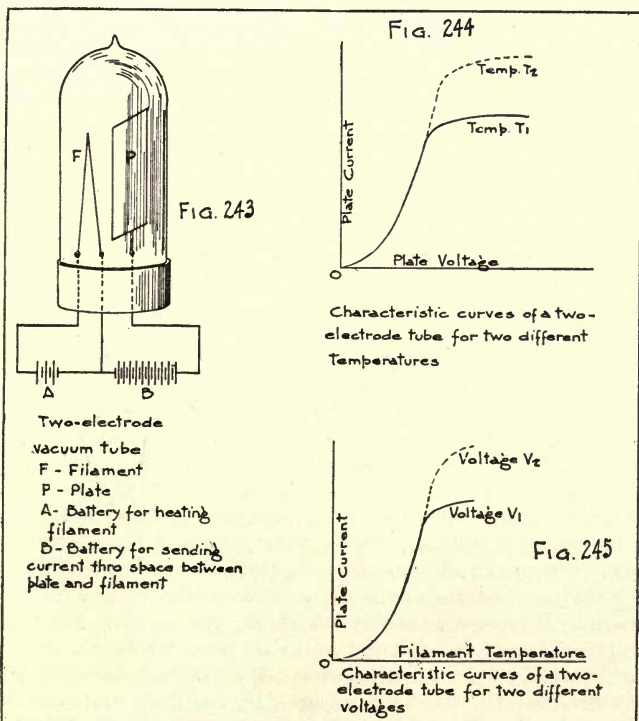 FIG. 243
F
P
A
B
Two-electrode
vacuum tube
F - Filament
P - Plate
A- Battery for heating
filament
B- Battery for sending
current thro space between
plate and filament
FIG. 244
Temp. T2
Temp. T1
Plate Current
Plate Voltage
O
Characteristic curves of a two-
electrode tube for two different
Temperatures
Voltage V2
Voltage V1
FIG. 245
Plate Current
Filament Temperature
O
Characteristic curves of a two-
electrode tube for two different
voltages